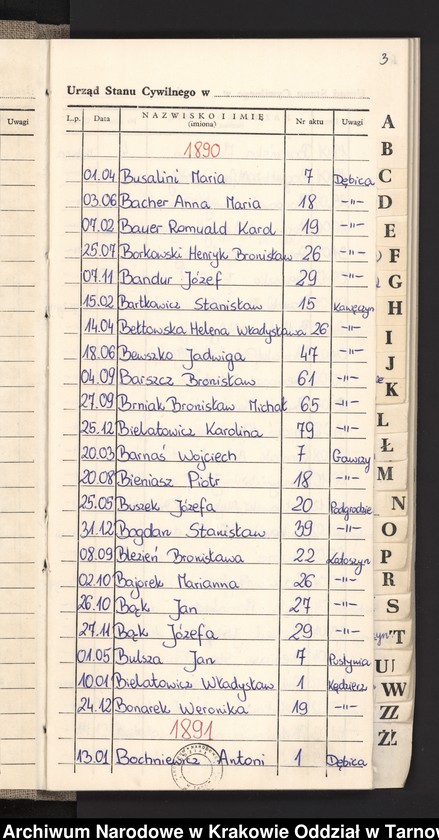 3
Urząd Stanu Cywilnego w
Uwagi
L.p. Data NAZWISKO I IMIĘ (imiona) Nr aktu Uwagi
1890
01.04 Busalini Maria 7 Dębica
03.06 Bacher Anna Maria 18 -"-
07.02 Bauer Romuald Karol 19 -"-
25.07 Borkowski Henryk Bronisław 26 -"-
07.11 Bandur Józef 29 -"-
15.02 Bartkowicz Stanisław 15 Kawęczyn
14.04 Bettowska Helena Władysława 26 -"-
18.06 Bewszko Jadwiga 47 -"-
04.09 Barszcz Bronisław 61 -"-
27.09 Brniak Bronisław Michał 65 -"-
25.12 Bielatowicz Karolina 79 -"-
20.03 Barnaś Wojciech 7 Gawrzy
20.08 Bieniasz Piotr 18 -"-
25.05 Buszek Józefa 20 Podgrodzie
31.12 Bogdan Stanisław 39 -"-
08.09 Błezień Bronisława 22 Latoszyn
02.10 Bajorek Marianna 26 -"-
26.10 Bąk Jan 27 -"-
27.11 Bąk Józefa 29 -"-
01.05 Bulsza Jan 7 Pustynia
10.01 Bielatowicz Władysław 1 Kędzierz
24.12 Bonarek Weronika 19 -"-
1891
13.01 Bochniewicz Antoni 1 Dębica
A
B
C
D
E
F
G
H
I
J
K
L
Ł
M
N
O
P
R
S
T
U
W
Z
Ż
Archiwum Narodowe w Krakowie Oddział w Tarnow